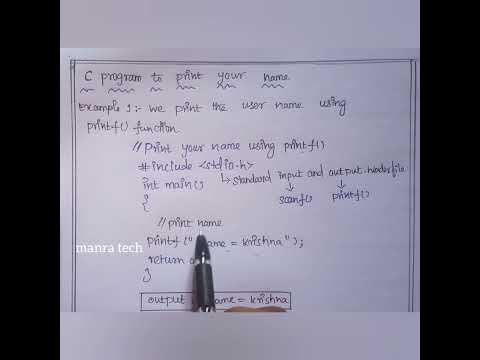 C program to print your name
Example 1 :- we print the user name using
printf() function.
//print your name using printf()
#include <stdio.h>
int main()
Standard input and output.headerfile
scanf() printf()
{
//print name
printf("name = krishna");
return
}
output name = krishna
manra tech